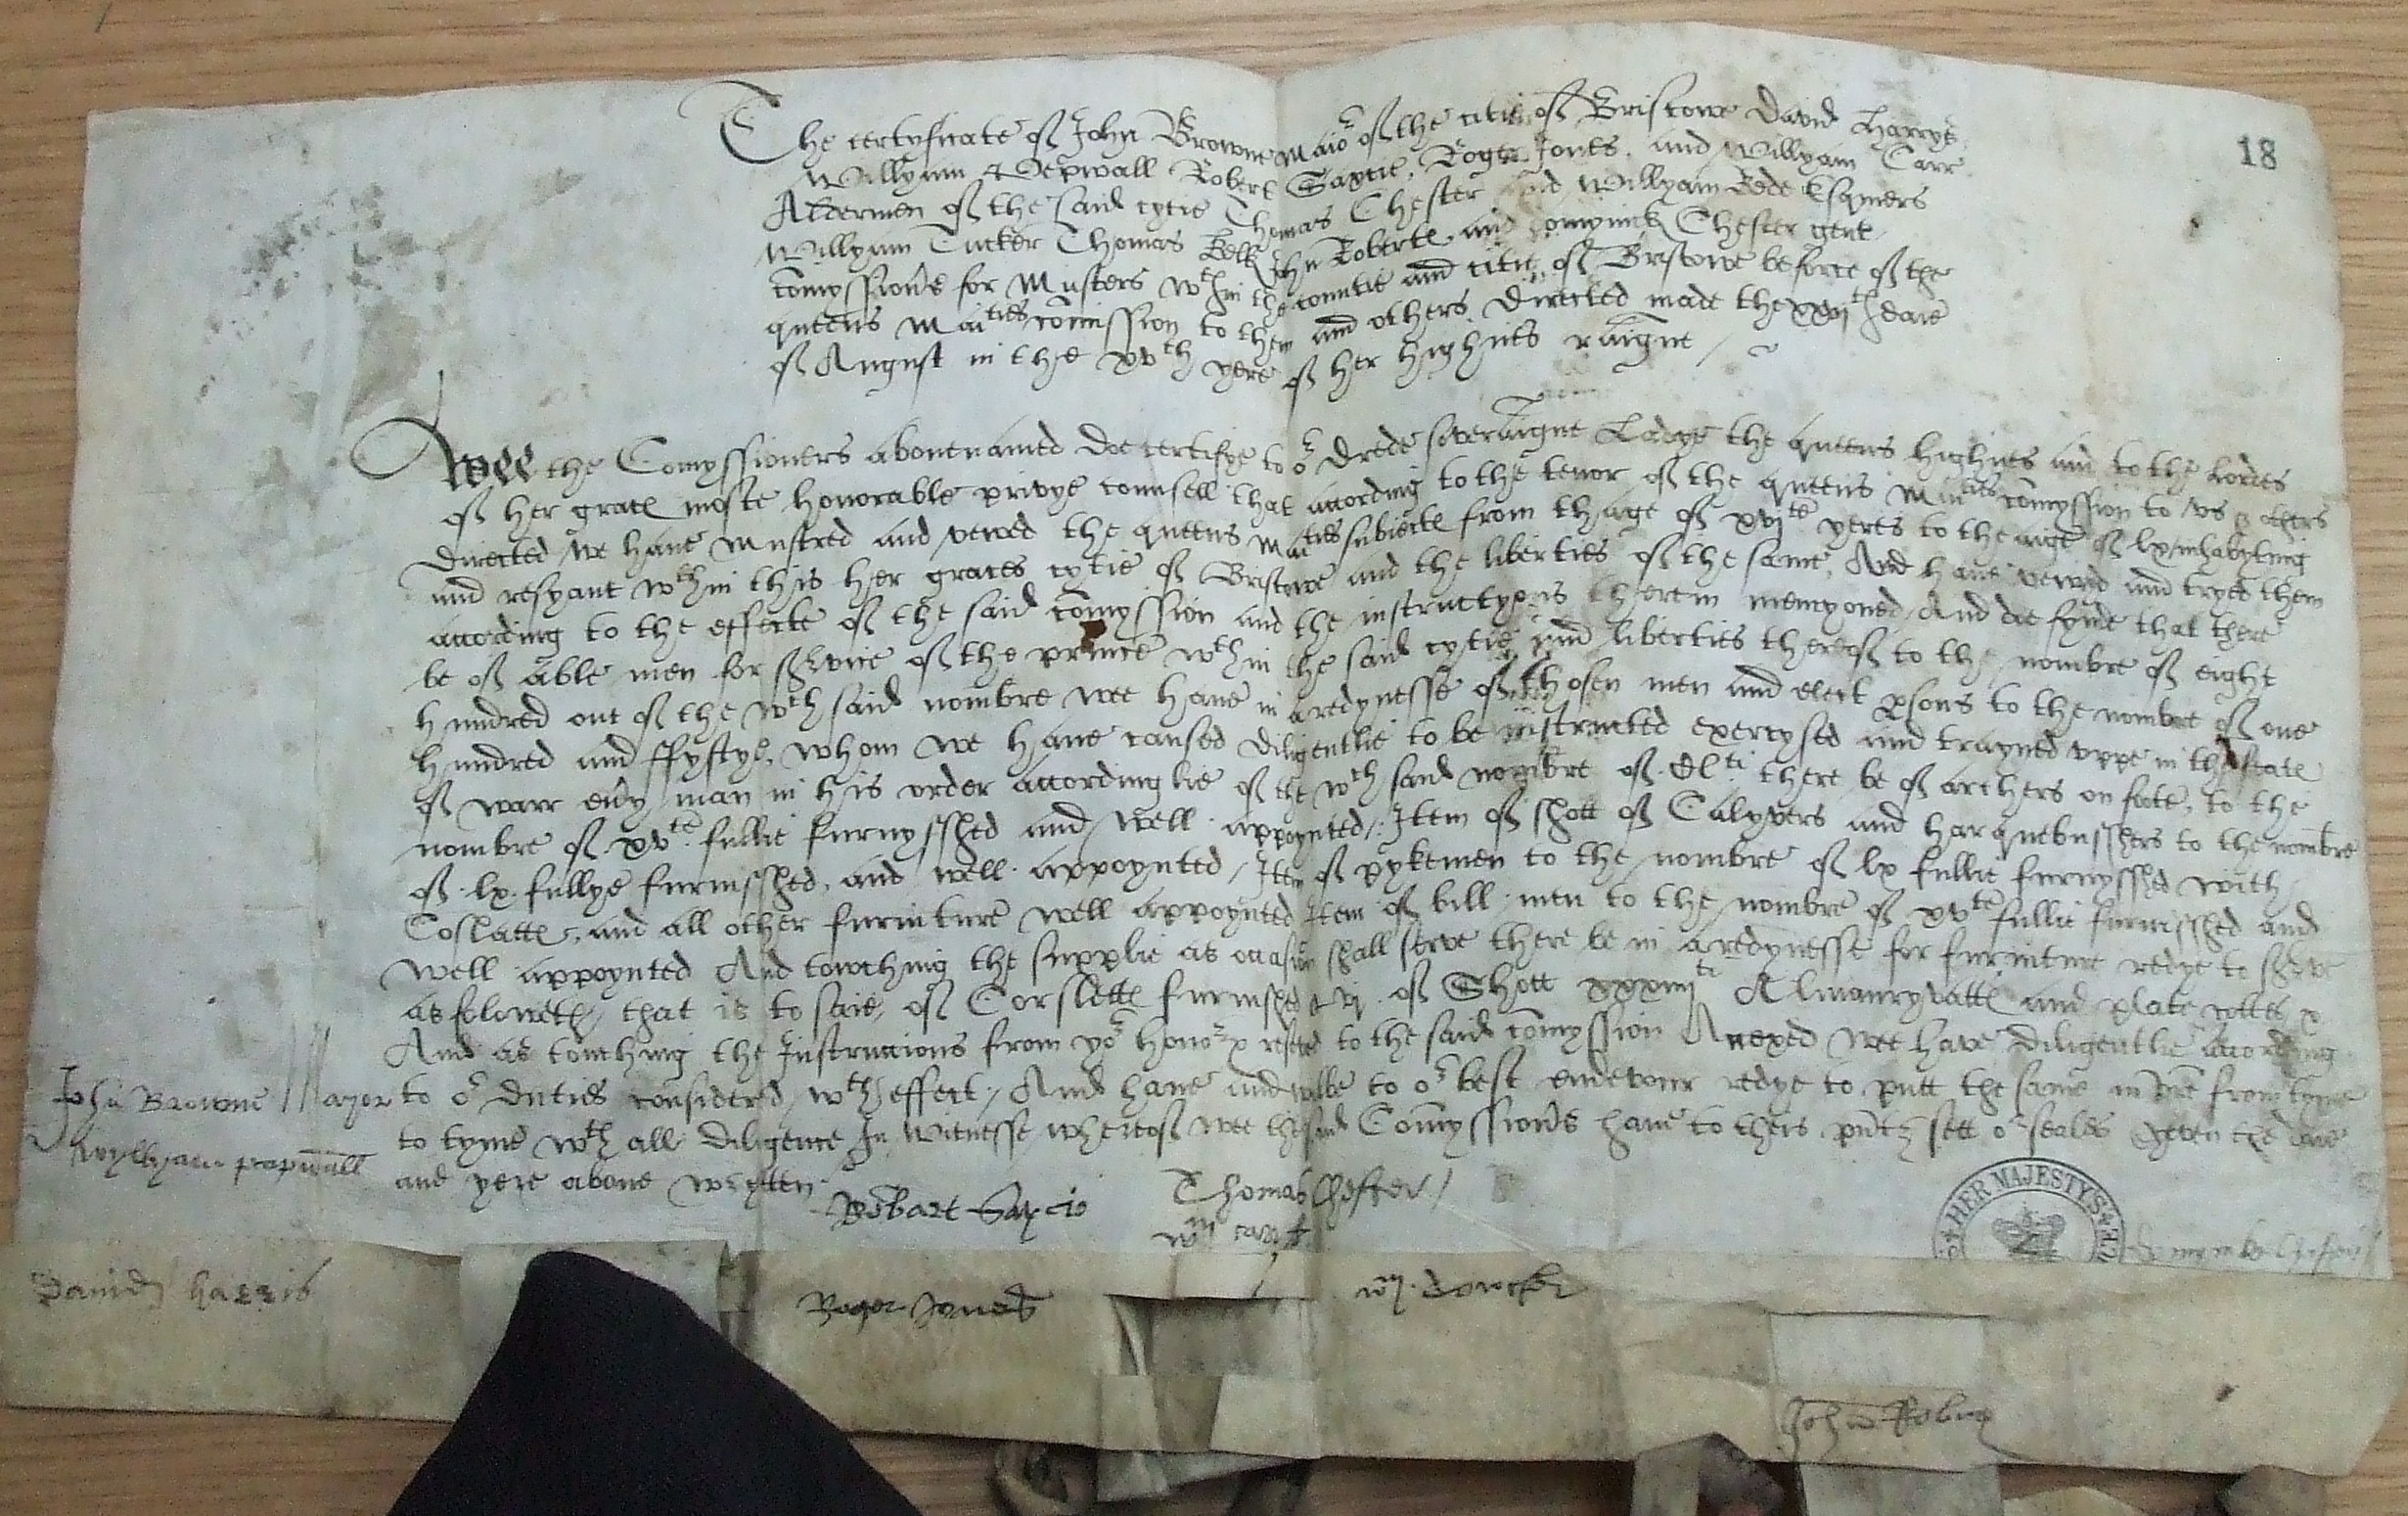 18
The certyficate of John Browne maior of the citie of Bristowe David Harrys
Willyam Pepwall Robert Saxcie, Roger Jones, and Willyam Carr
Aldermen of the said cytie Thomas Chester and Willyam Rede Esquiers
Willyam Tucker Thomas Kelk John Robertes and Domynick Chester gent
Comyssioners for Musters wth in the countie and citie of Bristowe before of the
queens Maties comission to them and others directed made the xxvjth daie
of August in the xvth yere of her highnes raigne
Wee the Comyssioners abovenamed doe certifye to or drede soveraigne Ladye the queens highnes and to the Lordes
of her graces moste honorable privye counsell that according to the tenor of the queens Maties comyssion to vs & others
directed we have mustred and vewed the queens Maties subiectes from thage of xvjte yeres to the age of lx inhabyting
and resyant wth in this her graces cytie of Bristowe and the liberties of the same, And have vewed and tryed them
according to the effecte of the said comyssion and the instructyons therein mencyoned, And doe fynde that there
be of able men for service of the prince wth in the said cytie and liberties thereof to the nombre of eight
hundred out of the wch said nombre wee have in aredynesse of chosen men and elect psons to the nombre of one
hundred and ffyftye, whom we have caused diligentlie to be instructed exercysed and trayned vppe in the feate
of warr every man in his order accordinglie of the wch said nombre of Clti there be of archers on foote, to the
nombre of xvte fullie furnysshed and well appoynted, Item of shott of Calyvers and harquebusshers to the nombre
of lx fullye furnisshed, and well appoynted, Item of pykemen to the nombre of lx fullie furnysshed with
Coslattes, and all other furniture well appoynted Item of bill men to the nombre of xvte fullie furnisshed and
well appoynted And towching the supplie as occasion shall serve there be in aredynesse for furniture redye to serve
as foloweth, that is to saie, of Corslettes furnished vj of Shott xxxiiijti Almanryvattes and plate cottes x
And as touching the Instructions from yor honors prefixed to the said comyssion Anexed wee have diligentlie according
to or duties considered, wth effect, And have and wilbe to or best endevour redye to putt the same in vre from tyme
to tyme wth all diligence In Witnesse whereof wee the said Comyssioners have to theis pntes sett or seales Yeven the daie
and yere above wrytten
John Browne Mayor
Wyllyam pepwall
Robart Saxcie
Thomas Chester
Wm carr
HER MAJESTY'S
David harris
Roger Jones
Wm
John